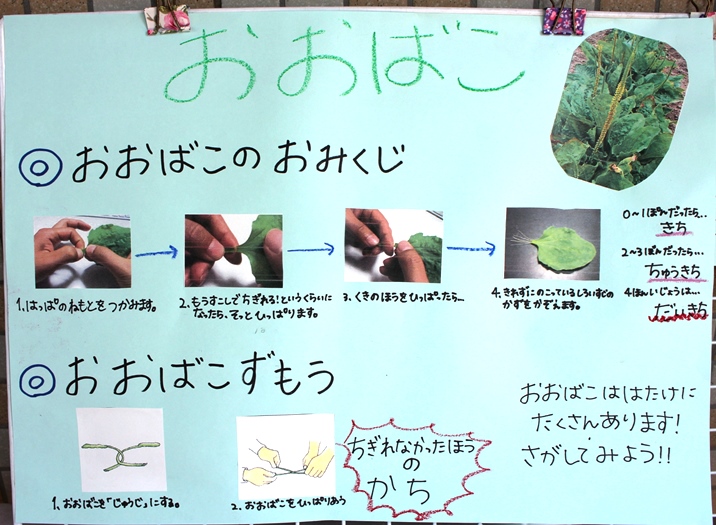 おおばこ
◎おおばこのおみくじ
1、はっぱのねもとをつかみます。
2、もうすこしでちぎれる!というくらいに
なったら、そっとひっぱります。
3、くきのほうをひっぱったら…
4、きれずにのこっているしろいすじの
かずをかぞえます。
0〜1ぽんだったら…
きち
2〜3ぼんだったら…
ちゅうきち
4ほんいじょうは…
だいきち
◎おおばこずもう
1、おおばこを「じゅうじ」にする。
2、おおばこをひっぱりあう
ちぎれなかったほう
の
かち
おおばこははたけに
たくさんあります!
さがしてみよう!!